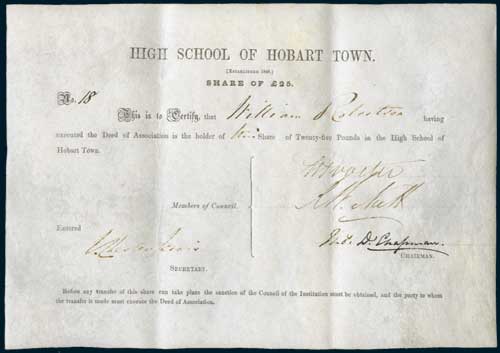 HIGH SCHOOL OF HOBART TOWN.
(ESTABLISHED 1848.)
SHARE OF £25.
No. 18
This is to Certify, that William Robertson having
executed the Deed of Association is the holder of Share of Twenty-five Pounds in the High School of
Hobart Town.
Members of Council.
Entered
Thos. D. Chapman.
SECRETARY.
CHAIRMAN.
Before any transfer of this share can take place the sanction of the Council of the Institution must be obtained, and the party to whom
the transfer is made must execute the Deed of Association.